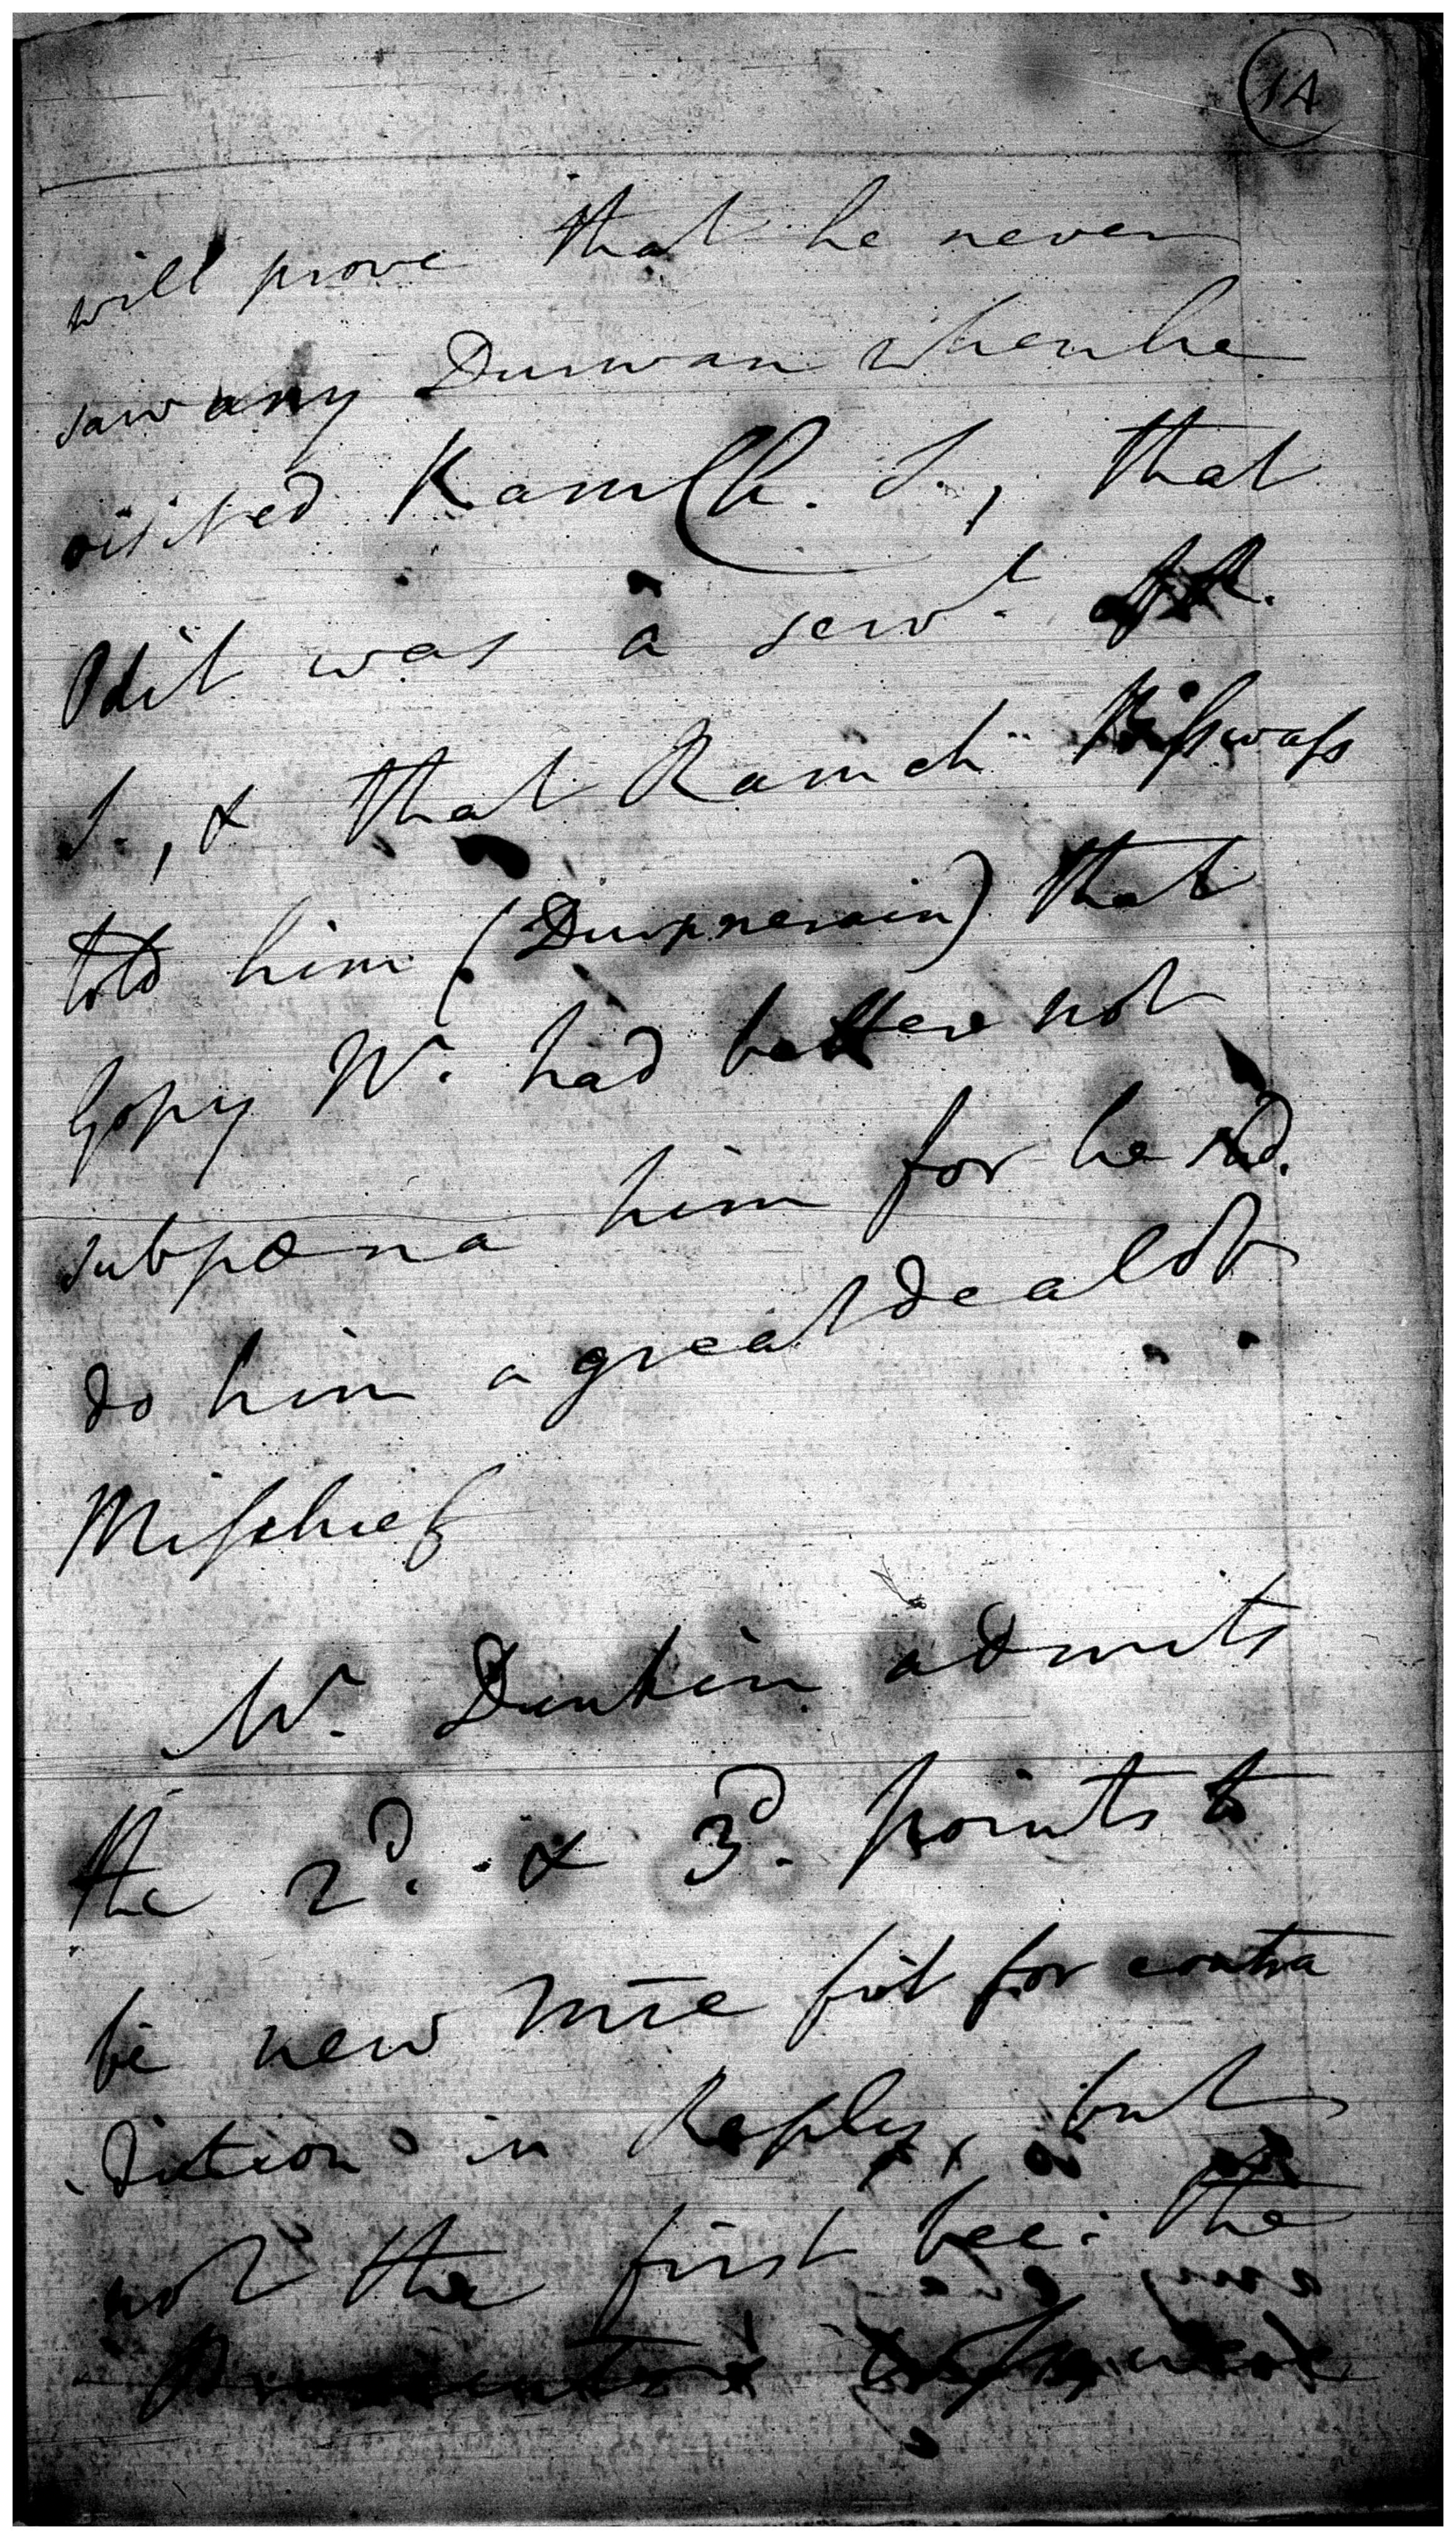 14
will prove that he never
saw any Durwan when he
visited Ram Ch. S., that
Odit was a servt. of R.
S., & that Ramch Bisswass
told him (Durpnerain) that
Gopy W. had better not
subpœna him for he wd.
do him a great deal of
Mischief
Mr. Dunkin admits
the 2d. & 3d. points to
be new mre fit for contra
diction in Reply, but
not the first bec: the